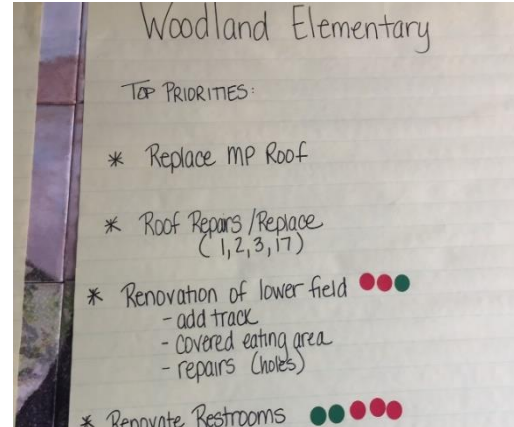 Woodland Elementary
TOP PRIORITIES:
* Replace MP Roof
* Roof Repairs/Replace
(1,2,3,17)
* Renovation of lower field
- add track
- covered eating area
- repairs (holes)
* Renovate Restrooms